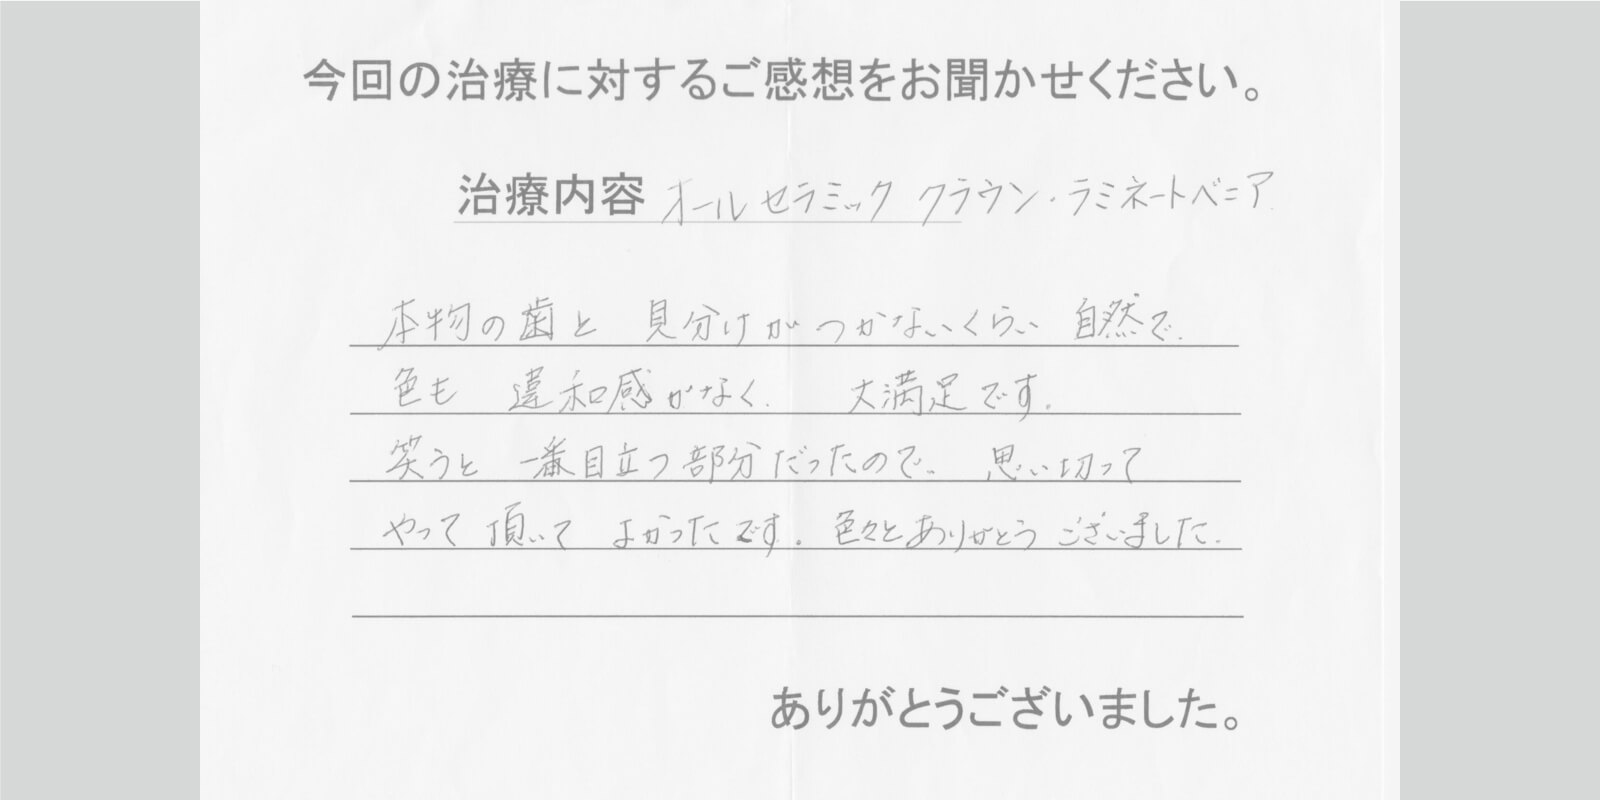 今回の治療に対するご感想をお聞かせください。
治療内容 オールセラミック クラウン・ラミネートベニア
本物の歯と 見分けがつかないくらい 自然で、
色も 違和感がなく、 大満足です。
笑うと 一番目立つ部分だったので、 思い切って
やって 頂いて よかったです。色々とありがとうございました。
ありがとうございました。